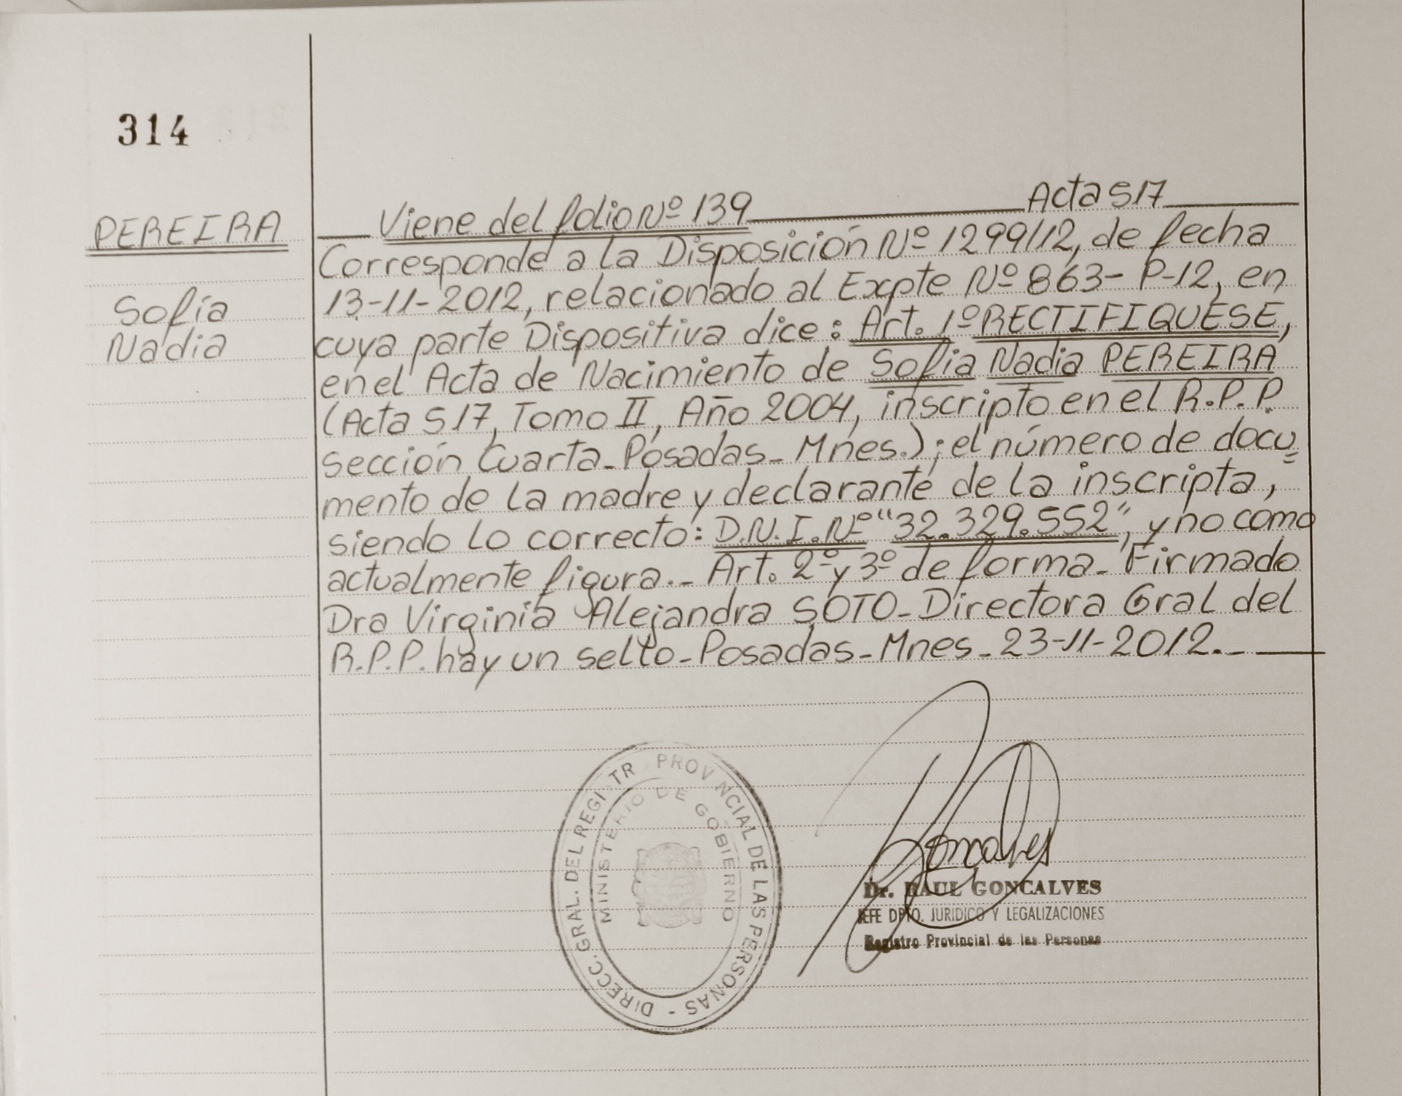 314
PEREIRA
Sofía
Nadia
Viene del folio Nº 139 Acta 517
Corresponde a la Disposición Nº 1299/12, de fecha
13-11-2012, relacionado al Expte Nº 863- P-12, en
cuya parte Dispositiva dice: Art. 1º RECTIFIQUESE,
en el Acta de Nacimiento de Sofia Nadia PEREIRA
(Acta 517, Tomo II, Año 2004, inscripto en el R.P.P.
Sección Cuarta-Posadas-Mnes.); el número de docu
mento de la madre y declarante de la inscripta,
siendo lo correcto: D.N.I. Nº "32.329.552", y no como
actualmente figura.- Art. 2º y 3º de forma- Firmado
Dra Virginia Alejandra SOTO-Directora Gral del
R.P.P. hay un sello-Posadas-Mnes-23-11-2012.-
DIRECC. GRAL. DEL REGISTR PROVINCIAL DE LAS PERSONAS -
MINISTERIO DE GOBIERNO
Goncalves
Dr. RAUL GONCALVES
JEFE DPTO. JURIDICO Y LEGALIZACIONES
Registro Provincial de las Personas